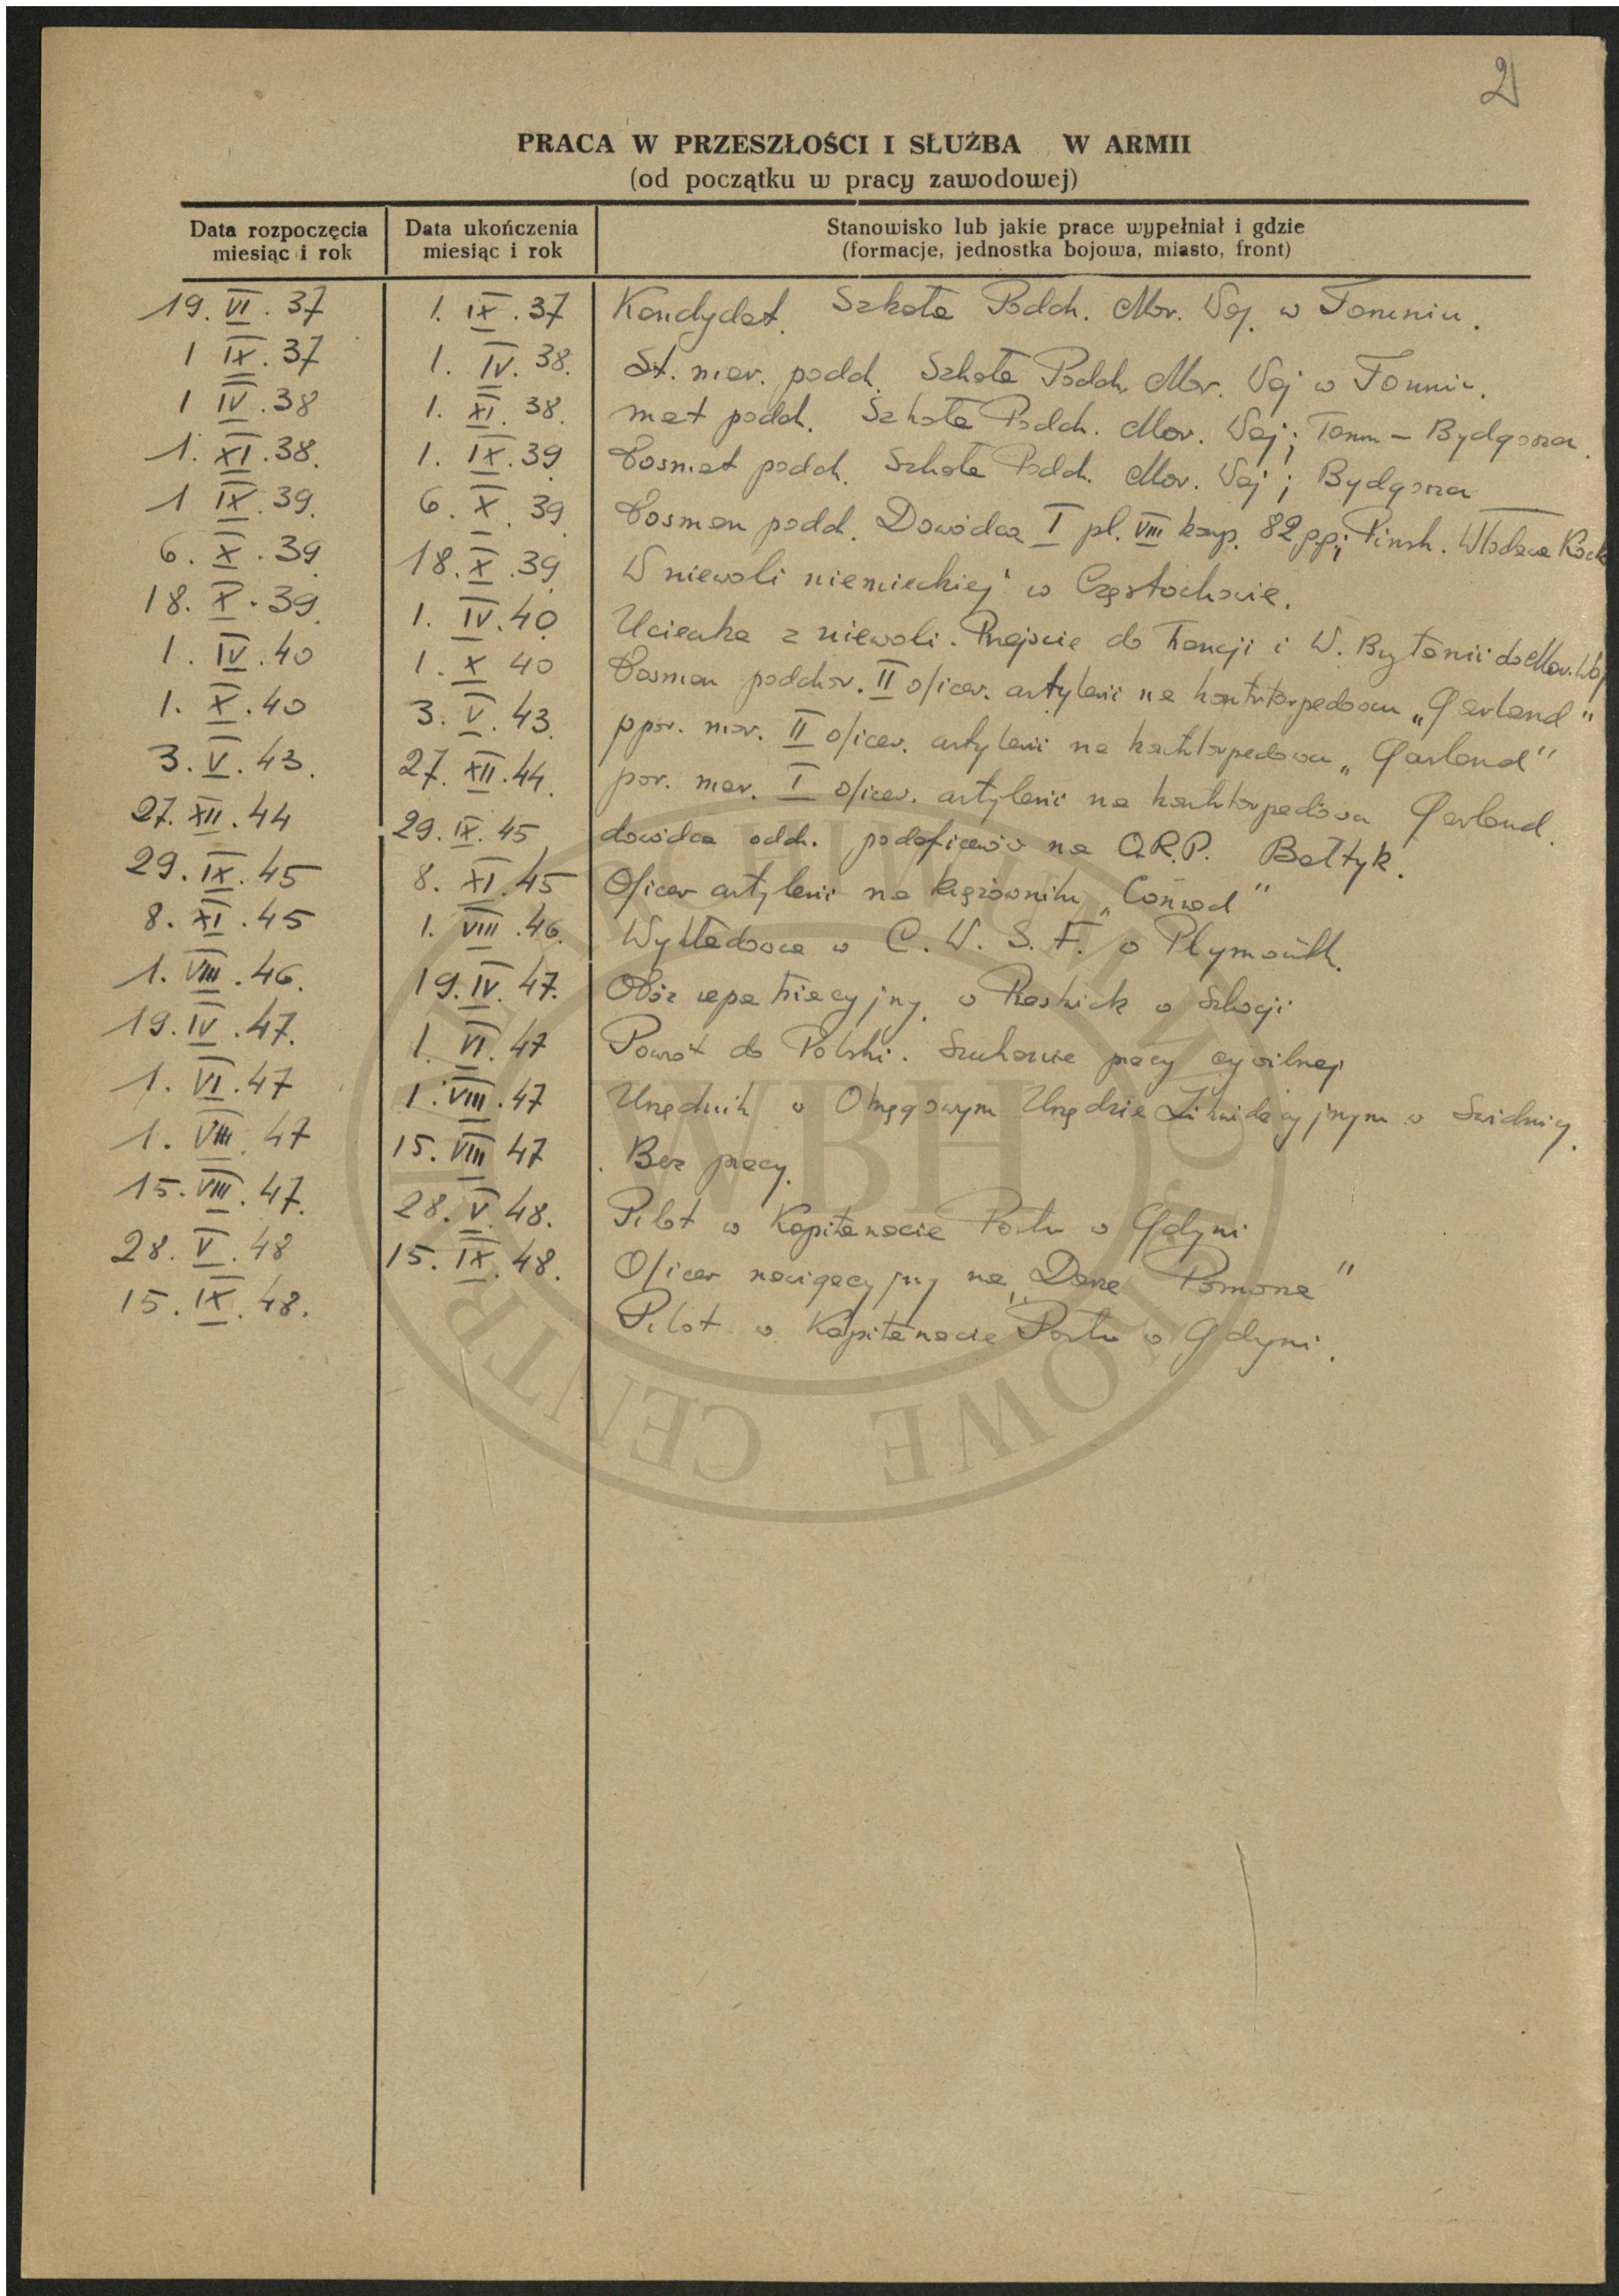 2
PRACA W PRZESZŁOŚCI I SŁUŻBA W ARMII
(od początku w pracy zawodowej)
Data rozpoczęcia miesiąc i rok | Data ukończenia miesiąc i rok | Stanowisko lub jakie prace wypełniał i gdzie (formacje, jednostka bojowa, miasto, front)
19. VI. 37 | 1. IX. 37 | Kandydat. Szkoła Podch. Mar. Woj. w Toruniu.
1 IX. 37 | 1. IV. 38. | St. mar. podch. Szkoła Podch. Mar. Woj w Toruniu.
1 IV. 38 | 1. XI. 38. | mat podch. Szkoła Podch. Mar. Woj; Toruń – Bydgoszcz.
1. XI. 38. | 1. IX. 39 | Bosmat podch. Szkoła Podch. Mar. Woj; Bydgoszcz
1 IX. 39. | 6. X. 39 | Bosman podch. Dowódca I pl. VIII komp. 82 pp; Pińsk. Włodawa Kock
6. X. 39 | 18. X. 39 | W niewoli niemieckiej w Częstochowie.
18. X. 39. | 1. IV. 40 | Ucieczka z niewoli. Przejście do Francji i W. Brytanii do Mar. Woj
1. IV. 40 | 1. X 40 | Bosman podchor. II oficer. artylerii na kontrtorpedowcu „Garland"
1. X. 40 | 3. V. 43. | ppor. mar. II oficer. artylerii na kontrtorpedowcu „Garland"
3. V. 43. | 27. XII. 44. | por. mar. I oficer. artylerii na kontrtorpedowcu Garland.
27. XII. 44 | 29. IX. 45 | dowódca oddz. podoficerów na O.R.P. Bałtyk.
29. IX. 45 | 8. XI. 45 | Oficer artylerii na krążowniku „Conrad"
8. XI. 45 | 1. VIII. 46. | Wykładowca w C. W. S. F. w Plymouth.
1. VIII. 46. | 19. IV. 47. | Obóz repatriacyjny w w Szkocji
19. IV. 47. | 1. VI. 47 | Powrót do Polski. Szukanie pracy cywilnej
1. VI. 47 | 1. VIII. 47 | Urzędnik w Okręgowym Urzędzie Likwidacyjnym w Świdnicy.
1. VIII. 47 | 15. VIII 47 | Bez pracy.
15. VIII. 47. | 28. V. 48. | Pilot w Kapitanacie Portu w Gdyni
28. V. 48 | 15. IX. 48. | Oficer nawigacyjny na „Darze Pomorza"
15. IX. 48. | Pilot w Kapitanacie Portu w Gdyni.
WBH